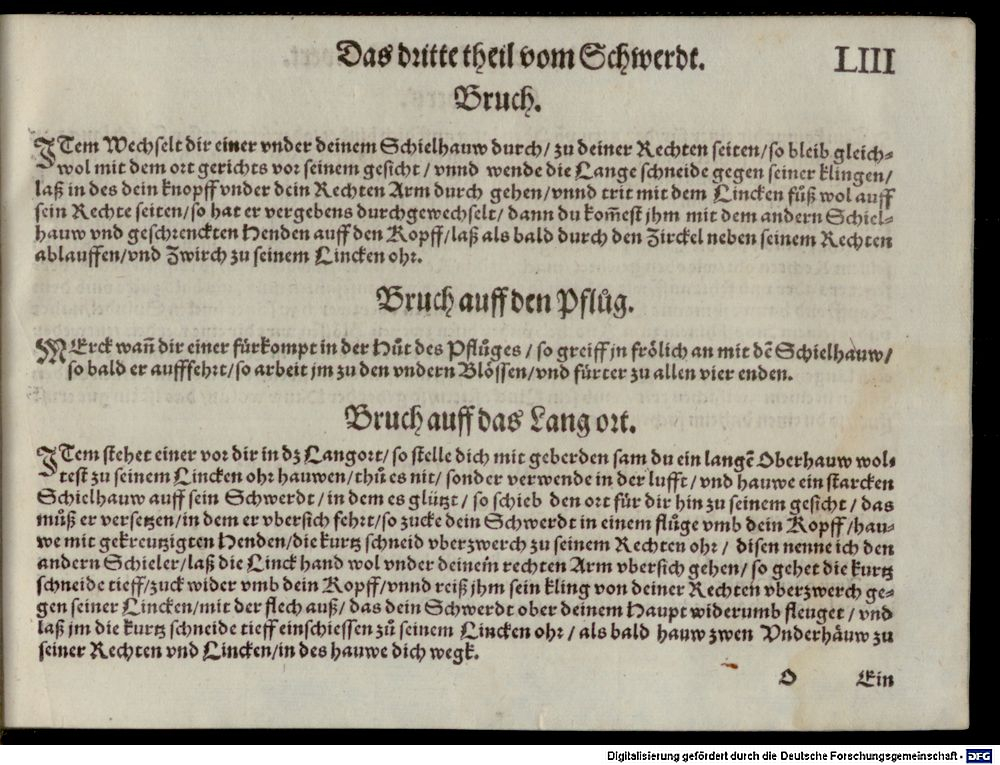 Das dritte theil vom Schwerdt. LIII
Bruch.
ITem Wechselt dir einer vnder deinem Schielhauw durch / zu deiner Rechten seiten / so bleib gleich⸗
wol mit dem ort gerichts vor seinem gesicht / vnnd wende die Lange schneide gegen seiner klingen /
laß in des dein knopff vnder dein Rechten Arm durch gehen / vnnd trit mit dem Lincken fůß wol auff
sein Rechte seiten / so hat er vergebens durchgewechselt / dann du kom̃est jhm mit dem andern Schiel⸗
hauw vnd geschrenckten Henden auff den Kopff / laß als bald durch den Zirckel neben seinem Rechten
ablauffen / vnd Zwirch zu seinem Lincken ohr.
Bruch auff den Pflůg.
MErck wañ dir einer fürkompt in der Hůt des Pflůges / so greiff jn frölich an mit dẽ Schielhauw /
so bald er aufffehrt / so arbeit jm zu den vndern Blössen / vnd fürter zu allen vier enden.
Bruch auff das Lang ort.
ITem stehet einer vor dir in dz Langort / so stelle dich mit geberden sam du ein langẽ Oberhauw wol⸗
test zu seinem Lincken ohr hauwen / thů es nit / sonder verwende in der lufft / vnd hauwe ein starcken
Schielhauw auff sein Schwerdt / in dem es glützt / so schieb den ort für dir hin zu seinem gesicht / das
můß er versetzen / in dem er vbersich fehrt / so zucke dein Schwerdt in einem flůge vmb dein Kopff / hau⸗
we mit gekreutzigten Henden / die kurtz schneid vberzwerch zu seinem Rechten ohr / disen nenne ich den
andern Schieler / laß die Linck hand wol vnder deinem rechten Arm vbersich gehen / so gehet die kurtz
schneide tieff / zuck wider vmb dein Kopff / vnnd reiß jhm sein kling von deiner Rechten vberzwerch ge⸗
gen seiner Lincken / mit der flech auß / das dein Schwerdt ober deinem Haupt widerumb fleuget / vnd
laß jm die kurtz schneide tieff einschiessen zů seinem Lincken ohr / als bald hauw zwen Vnderhäuw zu
seiner Rechten vnd Lincken / in des hauwe dich wegk.
O Ein
Digitalisierung gefördert durch die Deutsche Forschungsgemeinschaft - DFG